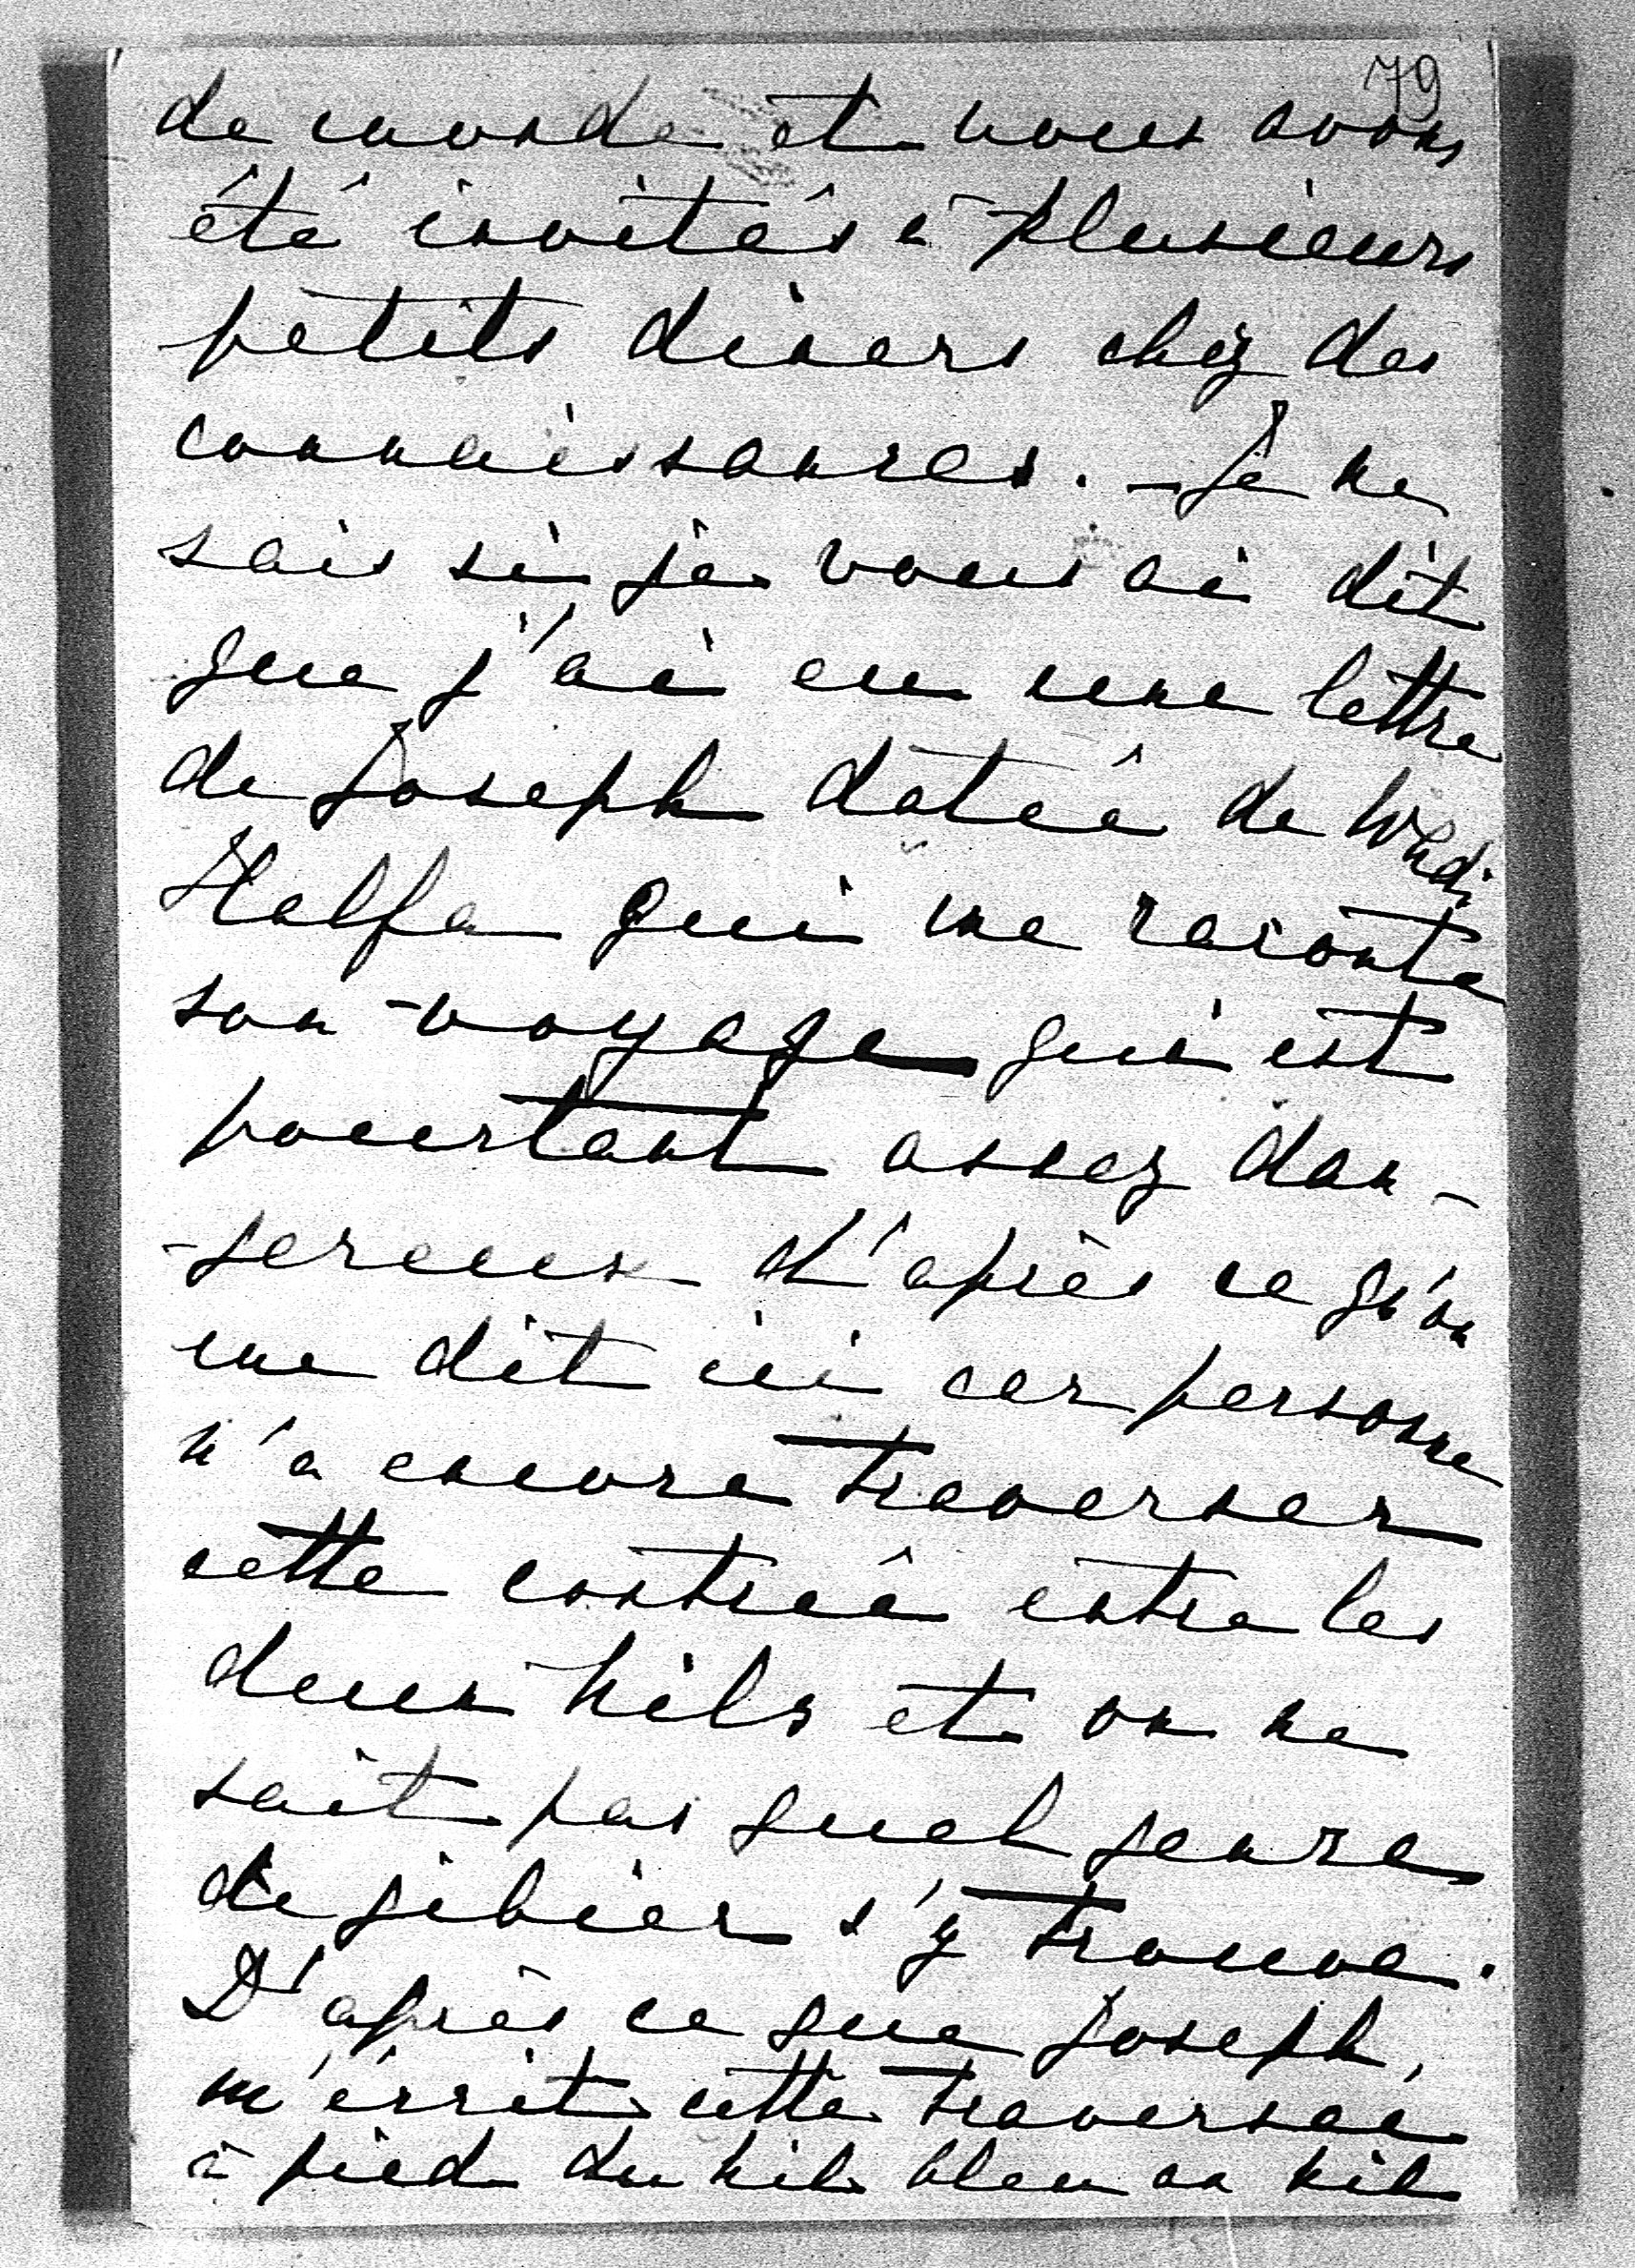 79
de monde et nous avons
été invités à plusieurs
petits diners chez des
connaissances. – Je ne
sais si je vous ai dit
que j'ai eu une lettre
de Joseph datée de Wadi
Halfa qui me raconte
son voyage qui est
pourtant assez dan-
-gereux d'après ce qu'on
me dit ici car personne
n'a encore traverser
cette contrée entre les
deux Nils et on ne
sait pas quel genre
de gibier s'y trouve.
D'après ce que Joseph,
m'écrit cette traversée
à pied du Nil bleu au Nil